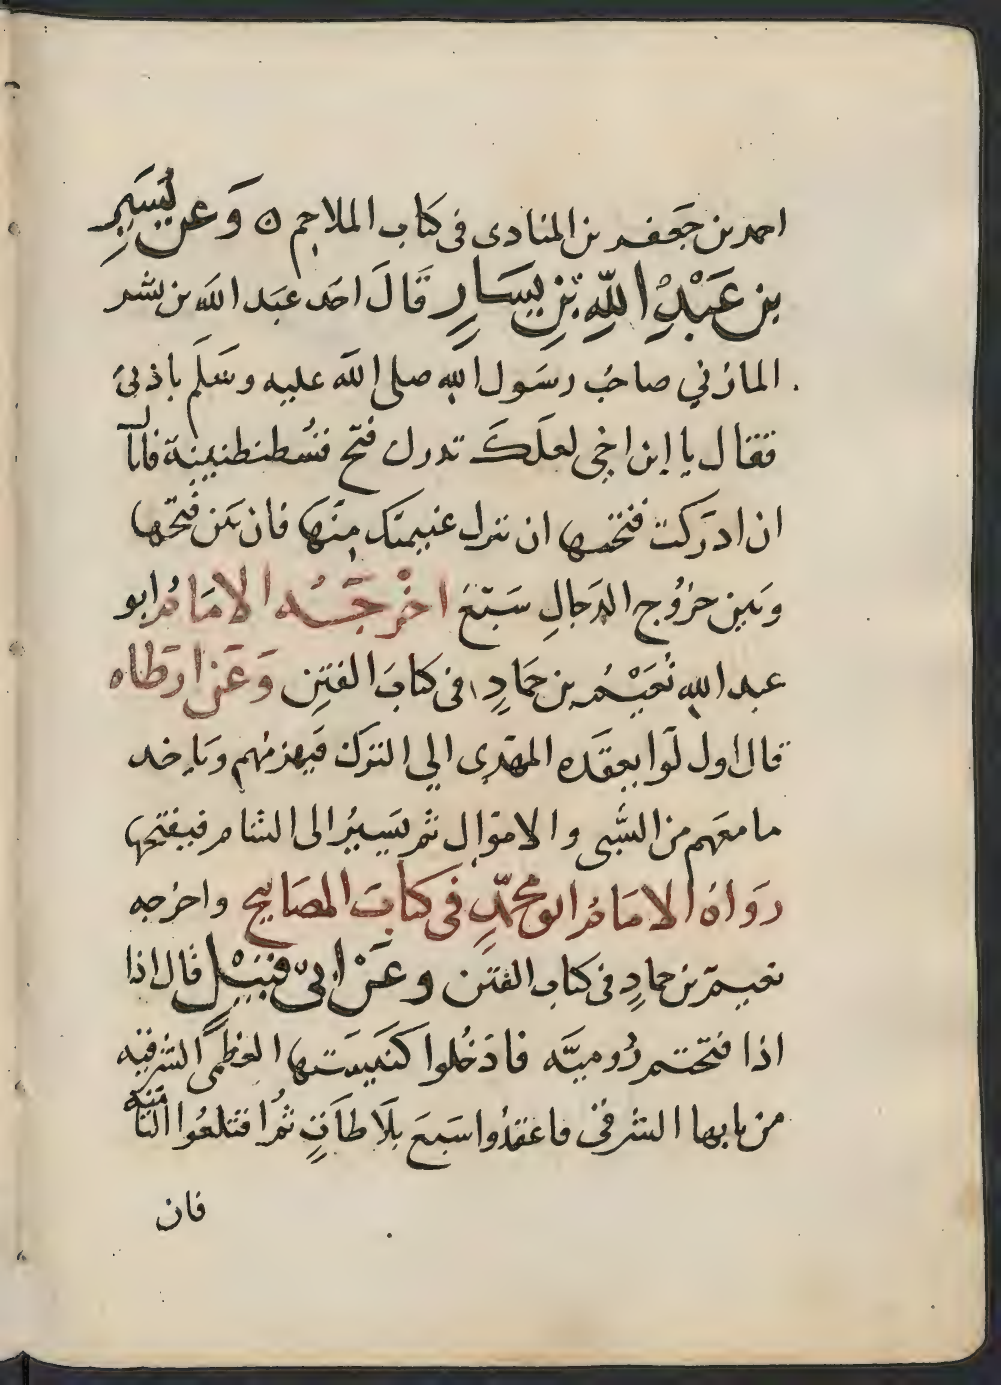 احمد بن جَعفر بن المنادى فى كتاب الملاحم ن وَعن يُسَيرِ
بن عَبْدِ اللّهِ بنِ يسَارٍ قَالَ احَد عبَد الله بن بشر
المازني صاحبُ رسَول الله صلى الله عليه وسَلم باذنى
فقال يا ابن اخِي لعلكَ تدرك فتح قسُطنطنينية فاياك
ان ادرَكت فتحها ان تترك غنيمتك مِنَها فان بين فَتحها
وبَين خرُوج الدجالِ سَبَع اخْرجَهُ الامَامُ ابو
عبد الله نُعَيْمُ بن حَمادٍ فى كتابَ الفتِن وَعَن ارطاه
قال اول لَوا يعقَده المهَدى الي الترك فَيهزمهم ويَاخد
ما معَهم من السَّبى والامَوال ثم يسَيرُ الى الشام فيفتحها
رَواهُ الامَامُ ابو محمّدٍ فى كتابَ المصَابيح واخرجه
نعيم بن حمادٍ فى كتاب الفتن وعَنْ ابى قبَيْل قال اذا
اذا فتحتم رُوميَّه فادَخُلوا كنَيسَتها العظمَى الشرقيه
من بابها الشرقى فاعتدُوا سَبعَ بَلَاطاتٍ ثمُ اقتلعُوا الثامنه
فان